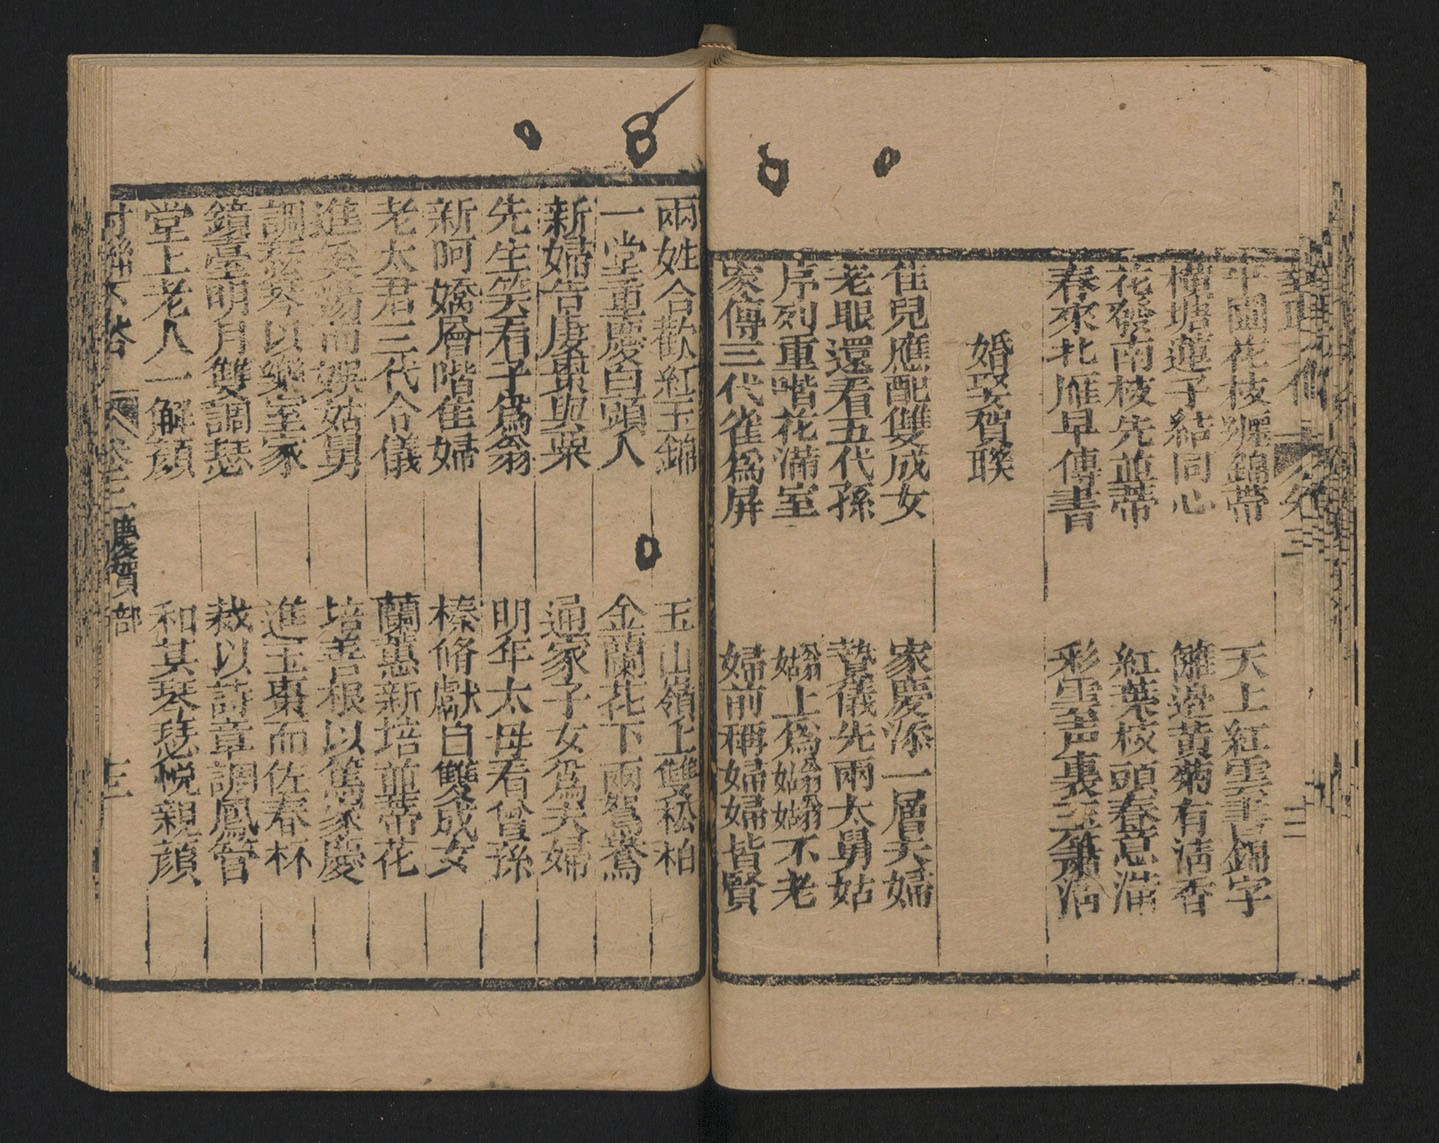 卷三
半園花枝纏錦帶
天上紅雲書錦字
橫塘蓮子結同心
籬邊黃菊有清香
花發南枝先並蒂
紅葉枝頭春意滿
春來北雁早傳書
彩雲声裏玉簫清
婚娶賀聯
佳兒應配雙成女
家慶添一層夫婦
老眼還看五代孫
贄儀先兩太舅姑
序列重階花滿室
翁姑上爲翁姑翁姑不老
家傳三代雀爲屏
婦前稱婦婦皆賢
兩姓合歡紅玉錦
玉山嶺上雙松柏
一堂重慶白頭人
金蘭花下兩鴛鴦
新婦告虔棗與栗
通家子女爲夫婦
先生笑看子爲翁
明年太母看曾孫
新阿嬌層階隹婦
榛脩獻自雙成女
老太君三代令儀
蘭蕙新培並蒂花
進羹湯而娛姑舅
培善根以篤家慶
調琴瑟以樂室家
進玉棗而佐春杯
鏡臺明月雙調瑟
裁以詩章調鳳管
堂上老人一解顏
和其琴瑟悅親顏
卷三 慶賀部